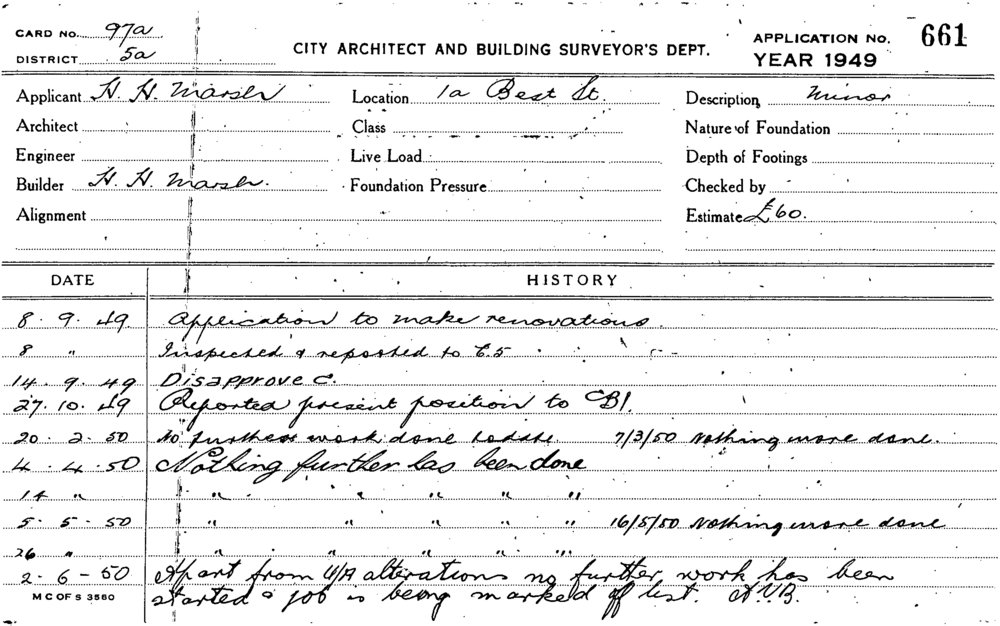 CARD NO. 97a
DISTRICT 5a
CITY ARCHITECT AND BUILDING SURVEYOR'S DEPT.
APPLICATION NO. 661
YEAR 1949
Applicant H. H. Marsh Location 1a Best St. Description Minor
Architect Class Nature of Foundation
Engineer Live Load Depth of Footings
Builder H. H. Marsh. Foundation Pressure Checked by
Alignment Estimate £60.
DATE HISTORY
8 . 9 . 49 Application to make renovations.
8 " Inspected & reported to E.5
14 . 9 . 49 Disapprove C.
27 . 10 . 49 Reported present position to CBI.
20 . 2 . 50 No further work done todate 7/3/50 Nothing more done.
4 . 4 . 50 Nothing further has been done
14 " " " " " "
5 . 5 . 50 " " " " " 16/5/50 Nothing more done
26 " " " " " "
2 - 6 - 50 Apart from U/A alterations no further work has been
M C OF S 3560 started & job is being marked off list. A.V.B.